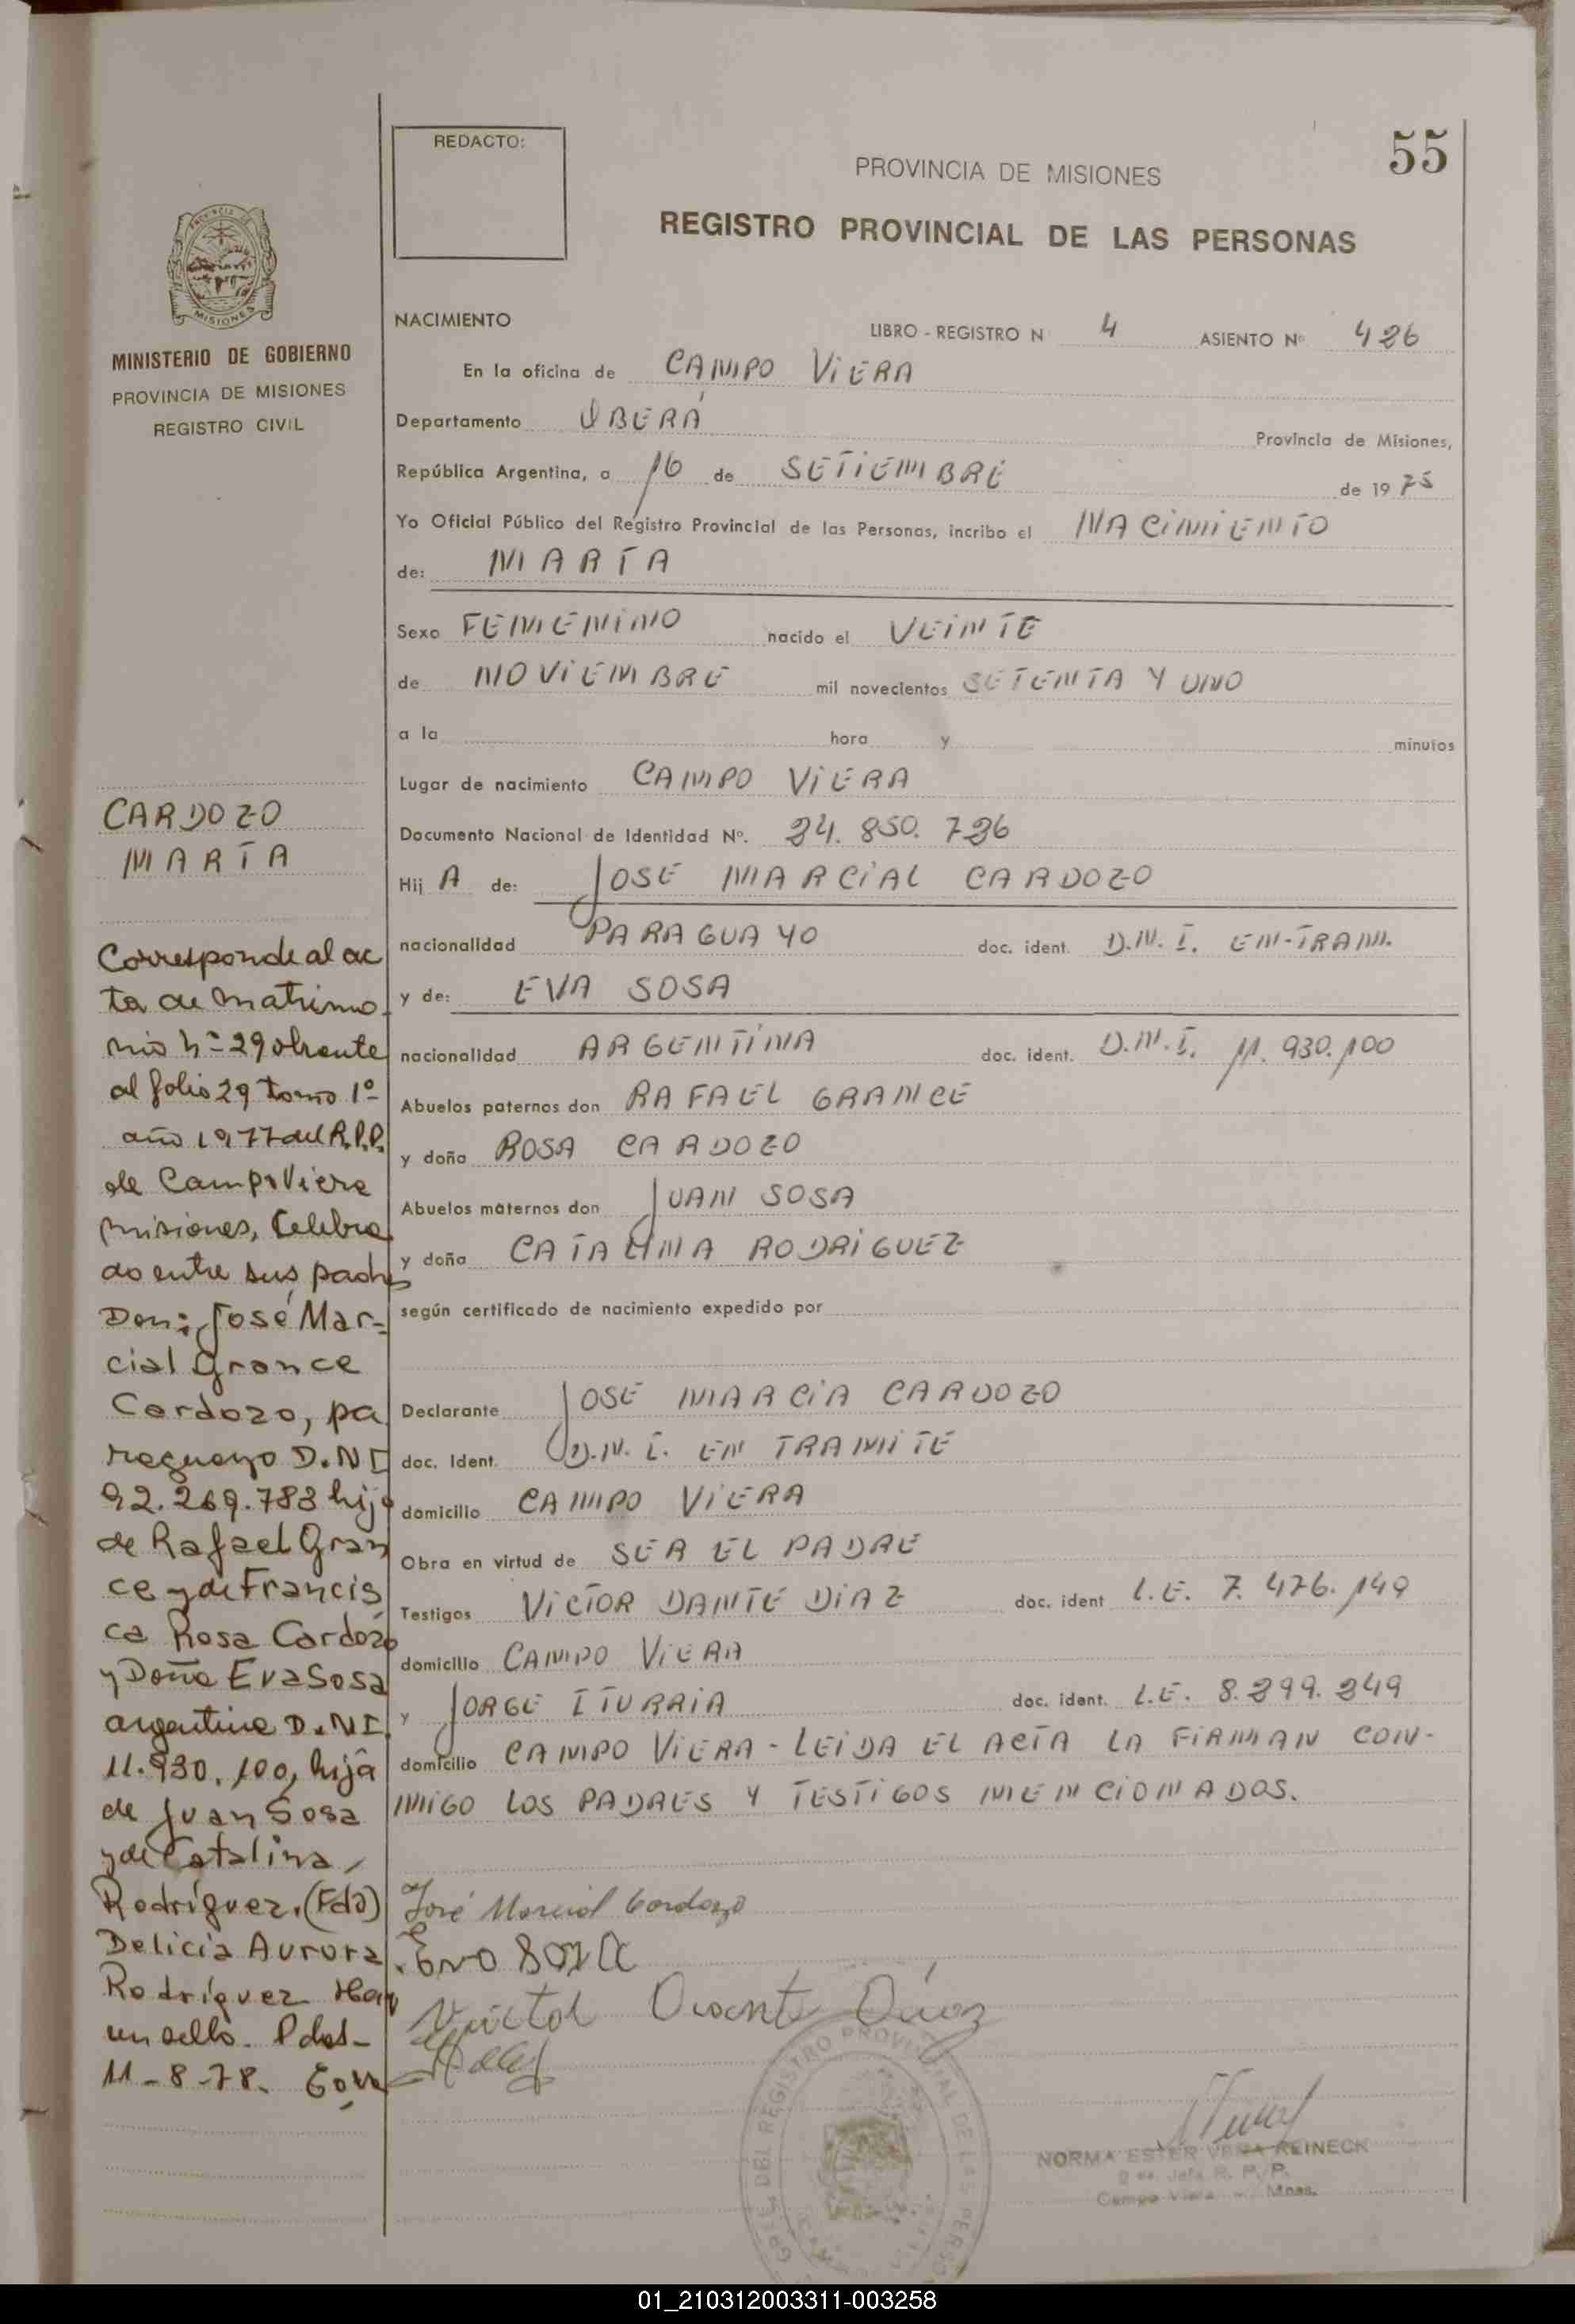 55
REDACTO:
PROVINCIA DE MISIONES
REGISTRO PROVINCIAL DE LAS PERSONAS
MISIONES
MINISTERIO DE GOBIERNO
PROVINCIA DE MISIONES
REGISTRO CIVIL
NACIMIENTO
LIBRO - REGISTRO N 4 ASIENTO Nº 426
En la oficina de CAMPO VIERA
Departamento OBERÁ Provincia de Misiones,
República Argentina, a 16 de SETIEMBRE de 1975
Yo Oficial Público del Registro Provincial de las Personas, incribo el NACIMIENTO
de: MARTA
Sexo FEMENINO nacido el VEINTE
de NOVIEMBRE mil novecientos SETENTA Y UNO
a la hora y minutos
Lugar de nacimiento CAMPO VIERA
Documento Nacional de Identidad Nº. 24. 850. 726
Hij A de: JOSE MARCIAL CARDOZO
nacionalidad PARAGUAYO doc. ident. D.N.I. EN-TRAM.
y de: EVA SOSA
nacionalidad ARGENTINA doc. ident. D.N.I. 11. 930. 100
Abuelos paternos don RAFAEL GRANCE
y doña ROSA CARDOZO
Abuelos maternos don JUAN SOSA
y doña CATALINA RODRIGUEZ
según certificado de nacimiento expedido por
Declarante JOSE MARCIA CARDOZO
doc. Ident. D.N.I. EN TRAMITE
domicilio CAMPO VIERA
Obra en virtud de SER EL PADRE
Testigos VICTOR DANTE DIAZ doc. ident L.E. 7. 476. 149
domicilio CAMPO VIERA
y JORGE ITURRIA doc. ident. L.E. 8. 299. 249
domicilio CAMPO VIERA - LEIDA EL ACTA LA FIRMAN CON-
MIGO LOS PADRES Y TESTIGOS MENCIONADOS.
José Marcial Cardozo
Eva Sosa
Victor Dante Diaz
NORMA ESTER VERA REINECK
Jefa R. P. P.
Campo Viera - Mnes.
CARDOZO
MARTA
Corresponde al ac
ta de matrimo
nio nº 29 obrante
al folio 29 tomo 1º
año 1977 del R.P.P.
de Campo Viera
Misiones, Celebra
do entre sus padres
Don: José Mar-
cial Grance
Cardozo, pa
raguayo D.NI
92.269.783 hijo
de Rafael Gran
ce y de Francis
ca Rosa Cardozo
y Doña Eva Sosa
argentina D.NI.
11.930.100, hija
de Juan Sosa
y de Catalina
Rodríguez. (Fdo)
Delicia Aurora
Rodríguez Hay
un sello. Pdas-
11-8-78.
01_210312003311-003258